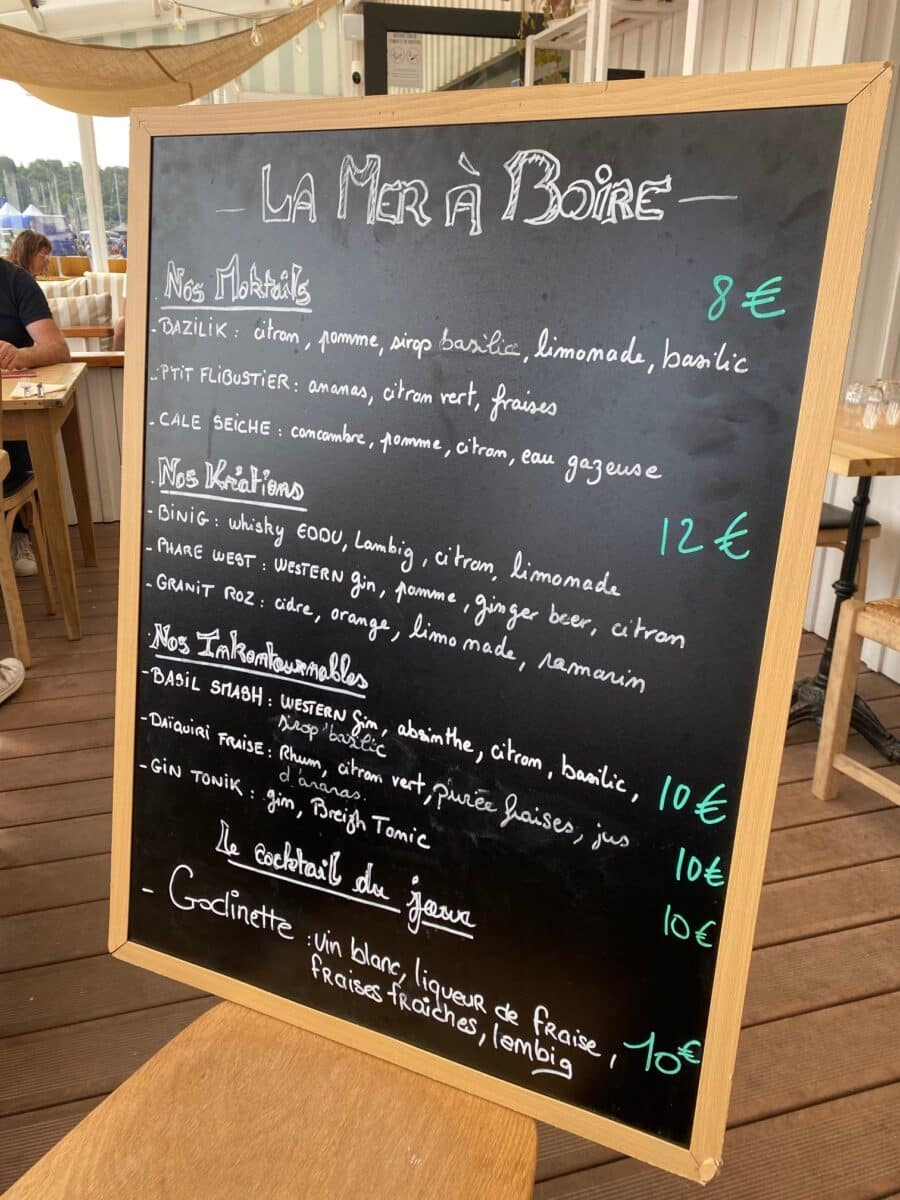 - LA MER À BOIRE -
Nos Moktails 8€
- BAZILIK : citron, pomme, sirop basilic, limonade, basilic
- P'TIT FLIBUSTIER : ananas, citron vert, fraises
- CALE SEICHE : concombre, pomme, citron, eau gazeuse
Nos Kréations 12€
- BINIG : whisky EDDU, Lambig, citron, limonade
- PHARE WEST : WESTERN gin, pomme, ginger beer, citron
- GRANIT ROZ : cidre, orange, limonade, ramarin
Nos Inkontournables
- BASIL SMASH : WESTERN gin, absinthe, citron, basilic, 10€
sirop basilic
- DAÏQUIRI FRAISE : Rhum, citron vert, purée fraises, jus 10€
d'ananas.
- GIN TONIK : gin, Breizh Tonic 10€
Le cocktail du jour
- Godinette : vin blanc, liqueur de fraise,
fraises fraîches, lambig 10€